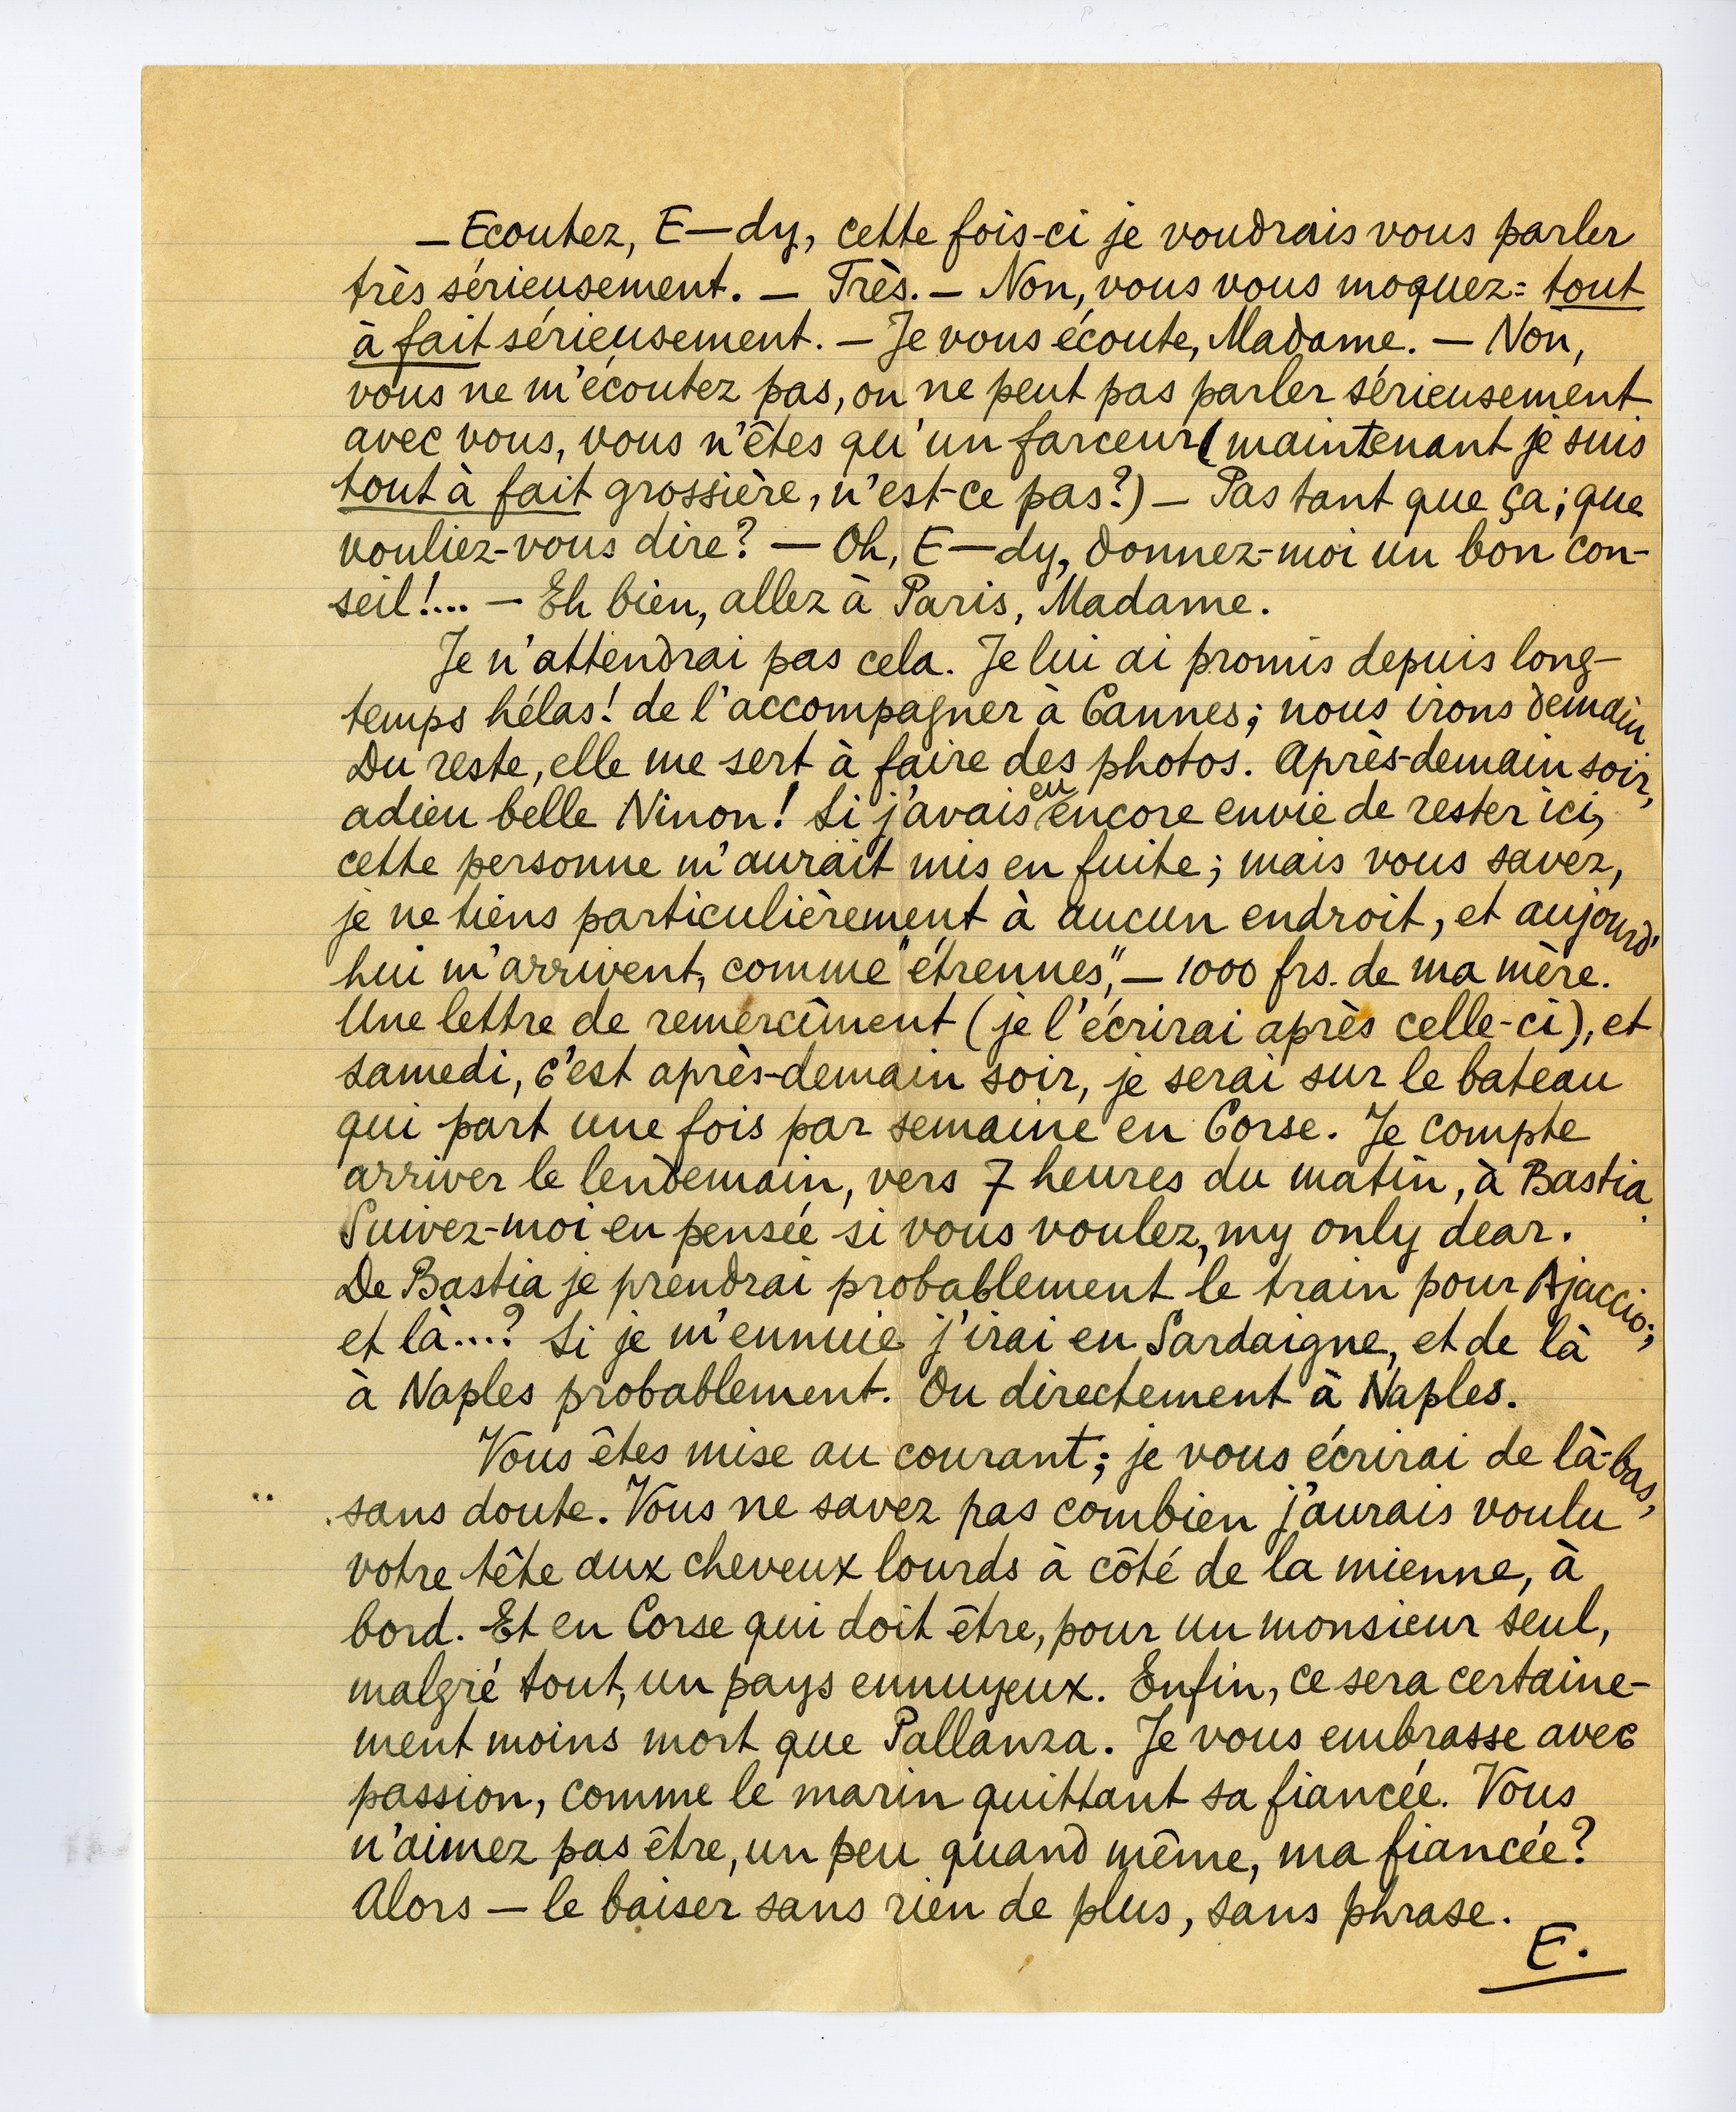 — Ecoutez, E—dy, cette fois-ci je voudrais vous parler
très sérieusement. — Très. — Non, vous vous moquez: tout
à fait sérieusement. — Je vous écoute, Madame. — Non,
vous ne m'écoutez pas, on ne peut pas parler sérieusement
avec vous, vous n'êtes qu'un farceur (maintenant je suis
tout à fait grossière, n'est-ce pas?) — Pas tant que ça; que
vouliez-vous dire? — Oh, E—dy, donnez-moi un bon con-
seil!... — Eh bien, allez à Paris, Madame.
Je n'attendrai pas cela. Je lui ai promis depuis long-
temps hélas! de l'accompagner à Cannes; nous irons demain.
Du reste, elle me sert à faire des photos. Après-demain soir,
adieu belle Ninon! Si j'avais eu encore envie de rester ici,
cette personne m'aurait mis en fuite; mais vous savez,
je ne tiens particulièrement à aucun endroit, et aujourd'
hui m'arrivent, comme "étrennes", — 1000 frs. de ma mère.
Une lettre de remercîment (je l'écrirai après celle-ci), et
samedi, c'est après-demain soir, je serai sur le bateau
qui part une fois par semaine en Corse. Je compte
arriver le lendemain, vers 7 heures du matin, à Bastia.
Suivez-moi en pensée si vous voulez, my only dear.
De Bastia je prendrai probablement le train pour Ajaccio;
et là...? Si je m'ennuie j'irai en Sardaigne, et de là
à Naples probablement. Ou directement à Naples.
Vous êtes mise au courant; je vous écrirai de là-bas,
sans doute. Vous ne savez pas combien j'aurais voulu
votre tête aux cheveux lourds à côté de la mienne, à
bord. Et en Corse qui doit être, pour un monsieur seul,
malgré tout, un pays ennuyeux. Enfin, ce sera certaine-
ment moins mort que Pallanza. Je vous embrasse avec
passion, comme le marin quittant sa fiancée. Vous
n'aimez pas être, un peu quand même, ma fiancée?
Alors — le baiser sans rien de plus, sans phrase.
E.